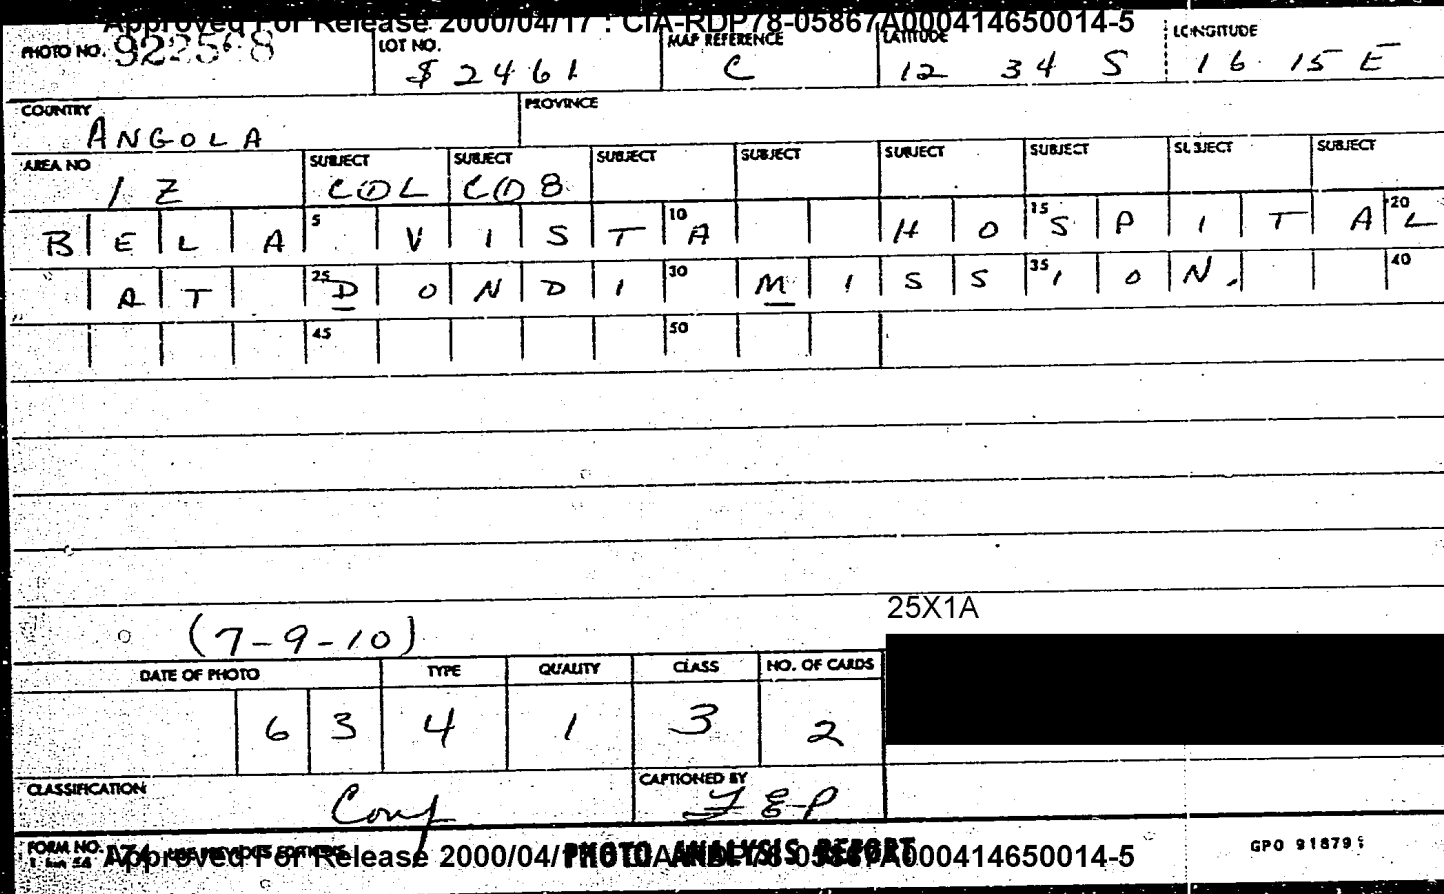 Approved For Release 2000/04/17 : CIA-RDP78-05867A000414650014-5
PHOTO NO. 922568 LOT NO. $2461 MAP REFERENCE C LATITUDE 12 34 S LONGITUDE 16 15 E
COUNTRY ANGOLA PROVINCE
AREA NO 1Z SUBJECT COL SUBJECT COB SUBJECT SUBJECT SUBJECT SUBJECT SUBJECT SUBJECT
BELA 5 VIST 10 A HO 15 SPITA 20 L
AT 25 DONDI 30 MISS 35 ION. 40
45 50
(7-9-10)
25X1A
DATE OF PHOTO TYPE QUALITY CLASS NO. OF CARDS
63 4 1 3 2
CLASSIFICATION Conf CAPTIONED BY FEP
FORM NO. 1 Jan 54 PHOTO ANALYSIS REPORT GPO 91879
Approved For Release 2000/04/17 : CIA-RDP78-05867A000414650014-5